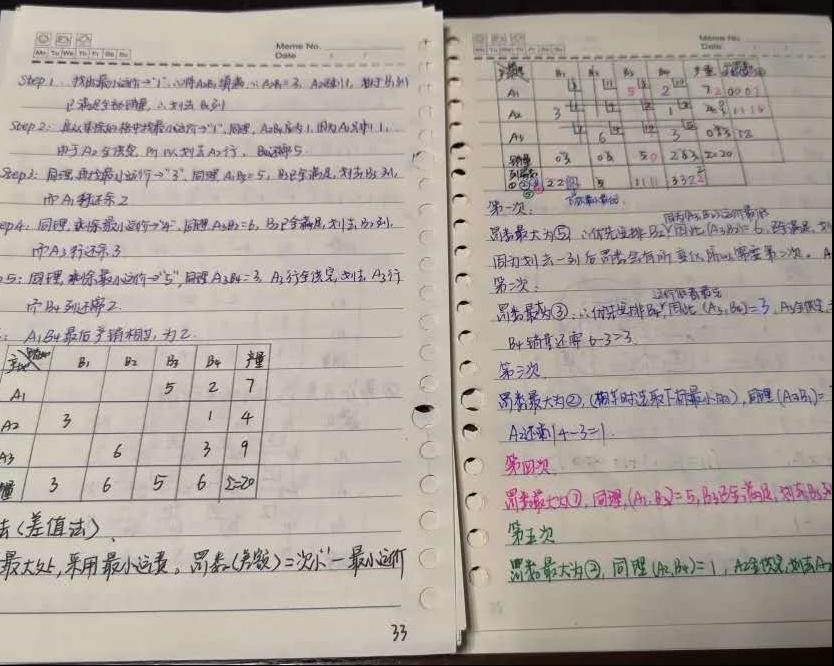 Memo No.
Mo Tu We Th Fr Sa Su
Date / /
Step 1. 找出最小运价→"1", ∴将A₂B₁填满, ∴A₂B₁=3, A₂还剩1,
已满足全部销量, ∴划去B₁列
Step 2: 再从剩余的格中找最小运价→"1", 同理, A₂B₄应为1, 因为A₂只剩1,
由于A₂全供完, 所以划去A₂行, B₄还需5
Step3: 同理, 再找最小运价→"3", 同理A₁B₃=5, B₃已全满足, 划去B₃列,
而A₁释还余2
ep4: 同理, 剩余最小运价→"4", 同理A₃B₂=6, B₂已全满足, 划去B₂列,
而A₃行还余3
5: 同理, 剩余最小运价→"5", 同理A₃B₄=3, A₃行全供完, 划去A₃行
而B₄列还需2.
: A₁B₄最后产销相等, 为2.
B₁ B₂ B₃ B₄ 产量
A₁ 5 2 7
A₂ 3 1 4
A3 6 3 9
量 3 6 5 6 Σ=20
法(差值法)、
最大处, 采用最小运费。罚数(差额)=次小－最小运价
33
Memo No.
Mo Tu We Th Fr Sa Su
Date / /
B₁ B₂ B₃ B₄ 产量
A₁ 5 2
A₂ 3 1
A₃ 6 3
销量
第一次:
罚数最大为⑤, ∴优先安排B₂, 因此(A₃B₂)=6, 已全满足, 划
因为划去一列后罚数会有所变化, 所以需要第二次。
第二次:
罚数最大为③, ∴优先安排B₄, 因此(A₃,B₄)=3, A₃全供完,
B₄销量还需 6-3=3.
第三次
罚数最大为②, (相等时选取下标最小的), 同理(A₂B₁)=
A₂还剩4-3=1.
第四次
罚数最大为⑦, 同理, (A₁,B₃)=5, B₃已全满足, 划去B₃列
第五次
罚数最大为②, 同理(A₂,B₄)=1, A₂全供完, 划去A₂